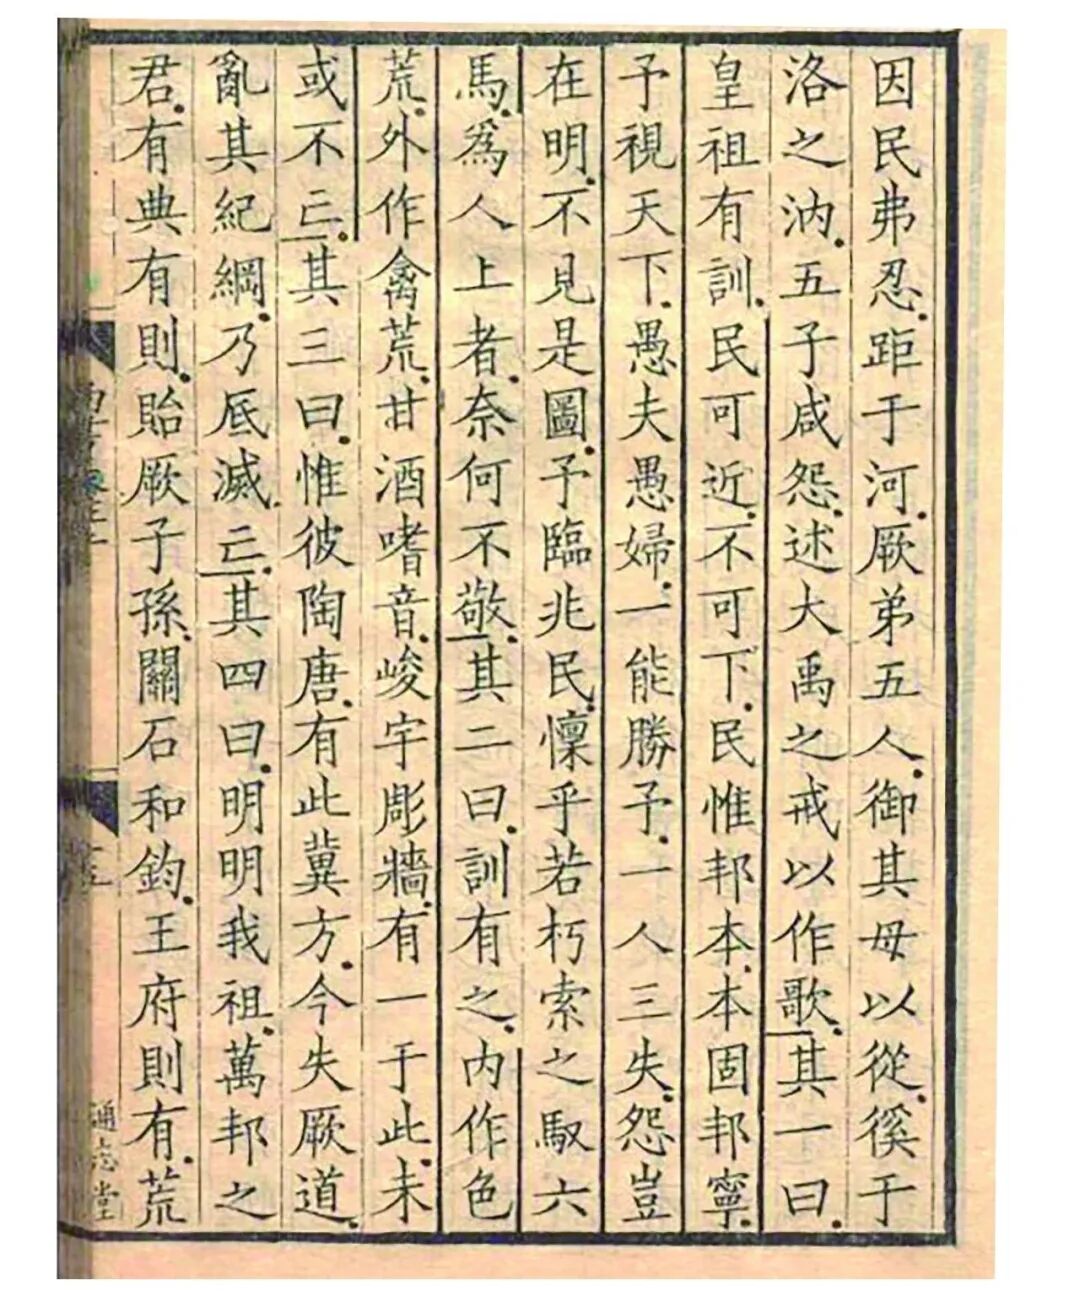 因民弗忍。距于河。厥弟五人。御其母以從。徯于
洛之汭。五子咸怨。述大禹之戒以作歌。其一曰。
皇祖有訓。民可近。不可下。民惟邦本。本固邦寧。
予視天下。愚夫愚婦。一能勝予。一人三失。怨豈
在明。不見是圖。予臨兆民。懍乎若朽索之馭六
馬。爲人上者。奈何不敬。其二曰。訓有之。内作色
荒。外作禽荒。甘酒嗜音。峻宇彫牆。有一于此。未
或不亡。其三曰。惟彼陶唐。有此冀方。今失厥道。
亂其紀綱。乃厎滅亡。其四曰。明明我祖。萬邦之
君。有典有則。貽厥子孫。關石和鈞。王府則有。荒
通志堂